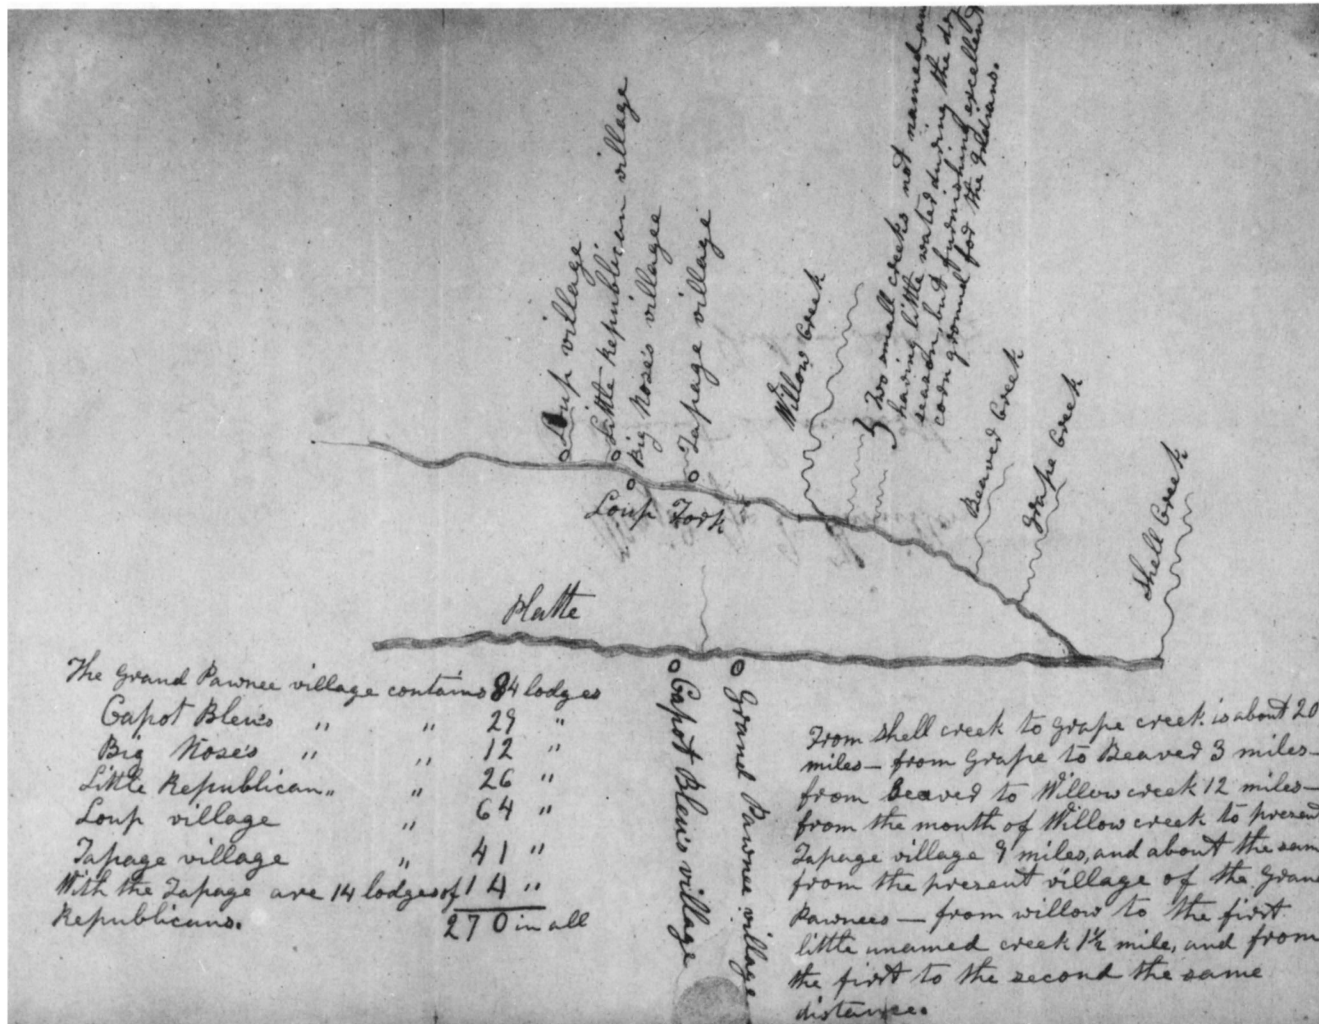 Loup village
Little Republican village
Big Nose's villagee
Tapage village
Willow Creek
Two small creeks not named and
having little water during the dry
season, but furnishing excellent
corn ground for the Indians.
Beaver Creek
Grape Creek
Shell Creek
Loup Fork
Platte
Capot Bleu's village
Grand Pawnee village
The Grand Pawnee village contains 84 lodges
Capot Bleu's " " 29 "
Big Nose's " " 12 "
Little Republican " " 26 "
Loup village " 64 "
Tapage village " 41 "
With the Tapage are 14 lodges of 14 "
Republicans. 270 in all
From Shell creek to Grape creek is about 20
miles — from Grape to Beaver 3 miles —
from Beaver to Willow creek 12 miles —
from the mouth of Willow creek to present
Tapage village 9 miles, and about the same
from the present village of the Grand
Pawnees — from willow to the first
little unamed creek 1½ mile, and from
the first to the second the same
distance.